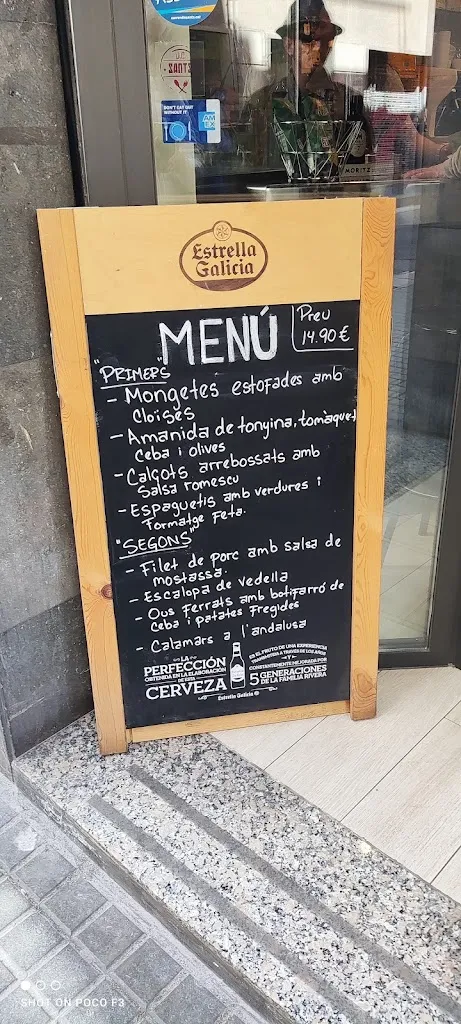 SANTS
DON'T EAT OUT
WITHOUT IT
AM
EX
MORITZ
Estrella
Galicia
MENÚ
Preu
14.90 €
"PRIMERS"
- Mongetes estofades amb
Cloïses
- Amanida de tonyina, tomàquet
Ceba i olives
- Calçots arrebossats amb
Salsa romescu
- Espaguetis amb verdures i
Formatge Feta.
"SEGONS"
- Filet de porc amb salsa de
mostassa.
- Escalopa de vedella
- Ous Ferrats amb botifarró de
Ceba i patates Fregides
- Calamars a l'andalusa
LA
PERFECCIÓN
OBTENIDA EN LA ELABORACIÓN
DE ESTA
CERVEZA
ES EL FRUTO DE UNA EXPERIENCIA
TRANSMITIDA A TRAVÉS DE LOS AÑOS
Y
CONSTANTEMENTE MEJORADA POR
5 GENERACIONES
DE LA FAMILIA RIVERA
Estrella Galicia
SHOT ON POCO F3